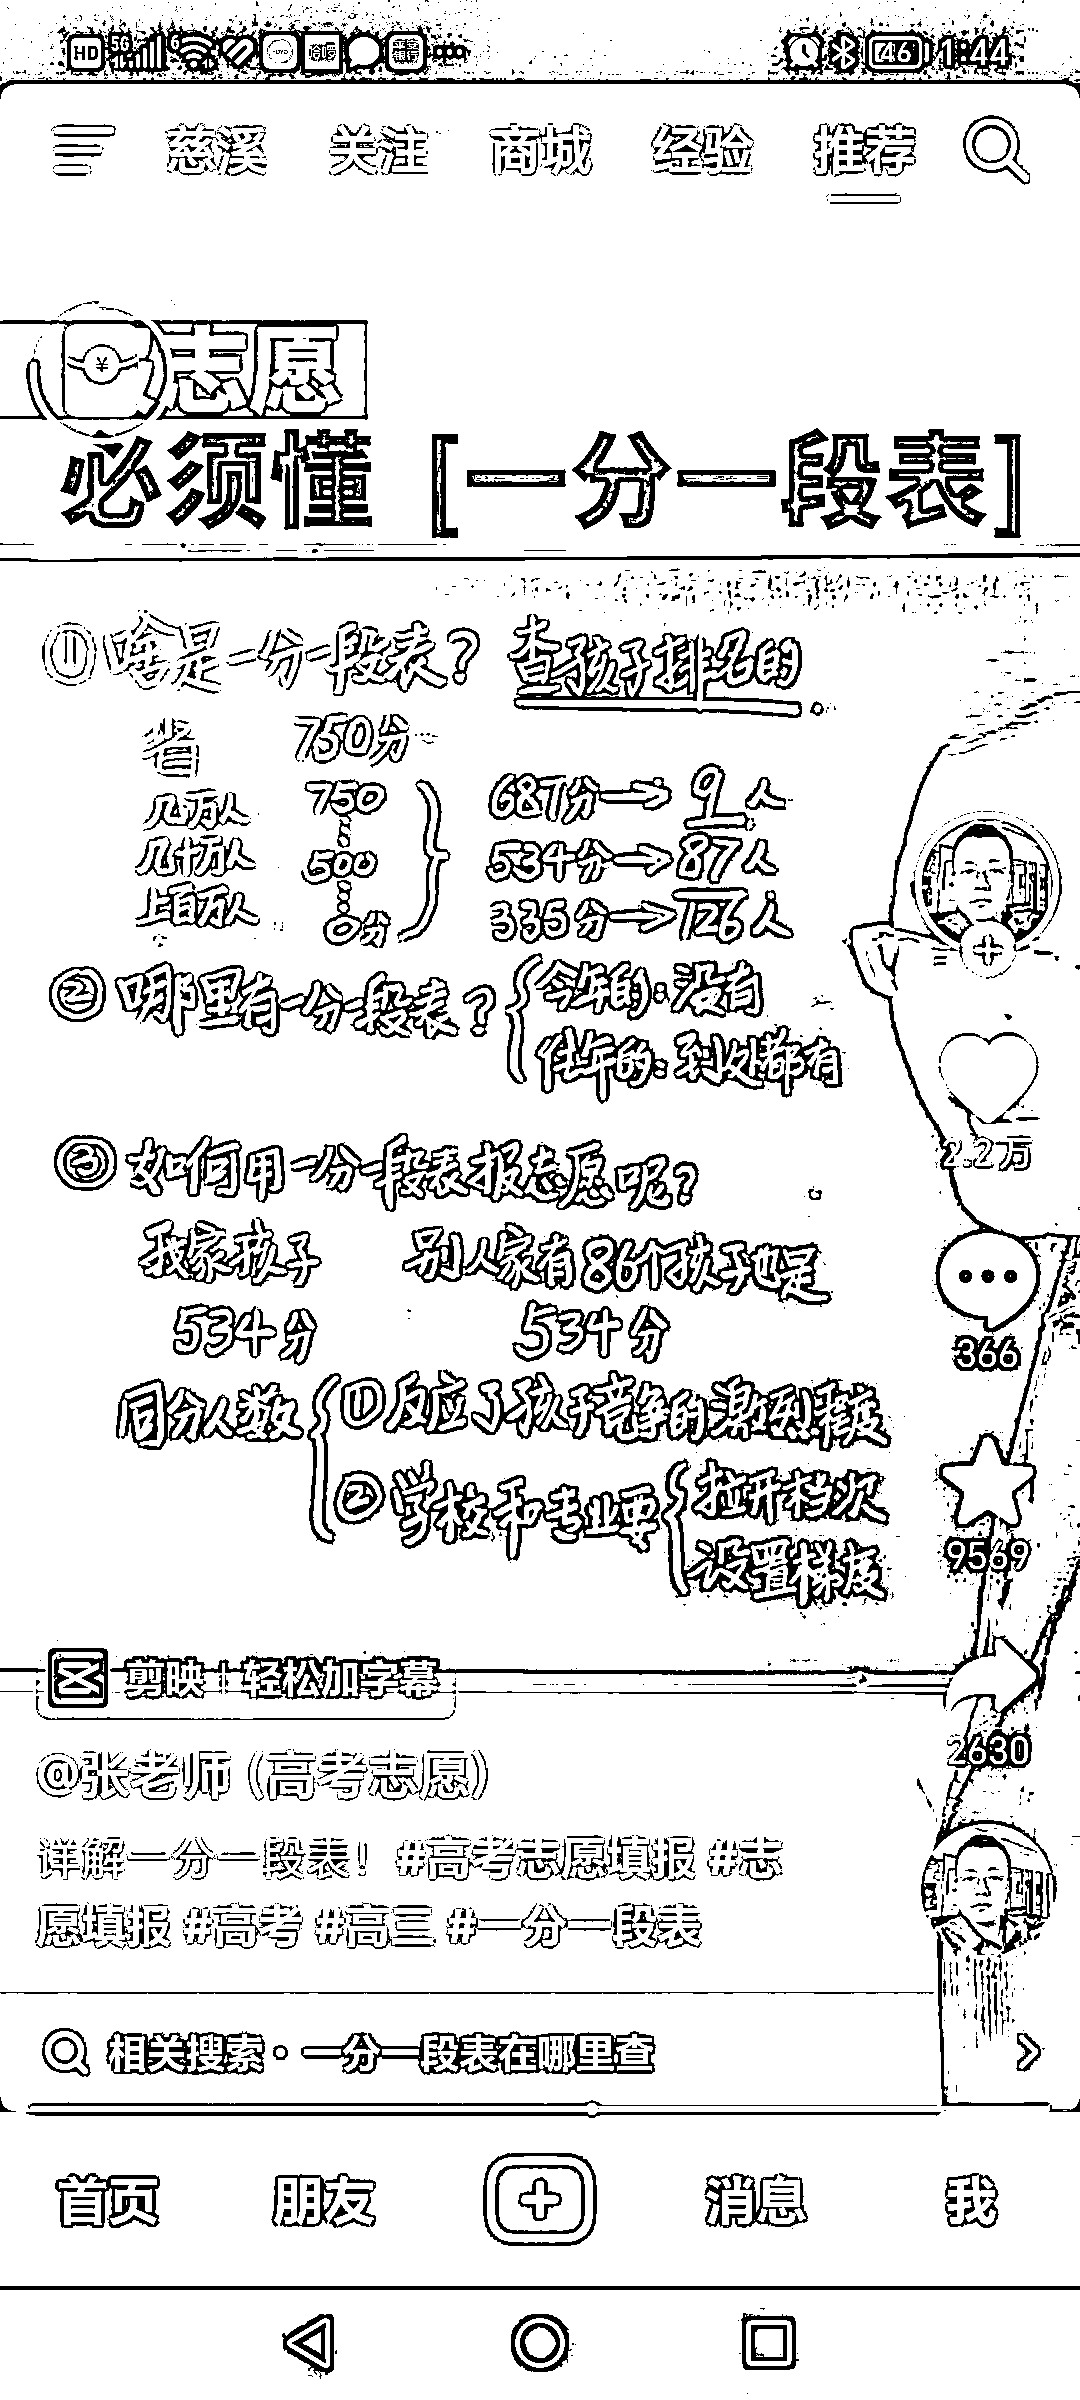 HD 5G 6 46 1:44
慈溪 关注 商城 经验 推荐
志愿
必须懂 [一分一段表]
① 啥是一分一段表? 查孩子排名的
省 750分
几万人 750 687分→9人
几十万人 500 534分→87人
上百万人 0分 335分→126人
② 哪里有一分一段表? 今年的:没有
往年的:到处都有
③ 如何用一分一段表报志愿呢?
我家孩子 别人家有86个孩子也是
534分 534分
同分人数 ①反应了孩子竞争的激烈程度
②学校和专业要 拉开档次
设置梯度
2.2万
366
9569
2630
剪映 | 轻松加字幕
@张老师 (高考志愿)
详解一分一段表! #高考志愿填报 #志
愿填报 #高考 #高三 #一分一段表
相关搜索·一分一段表在哪里查
首页 朋友 消息 我